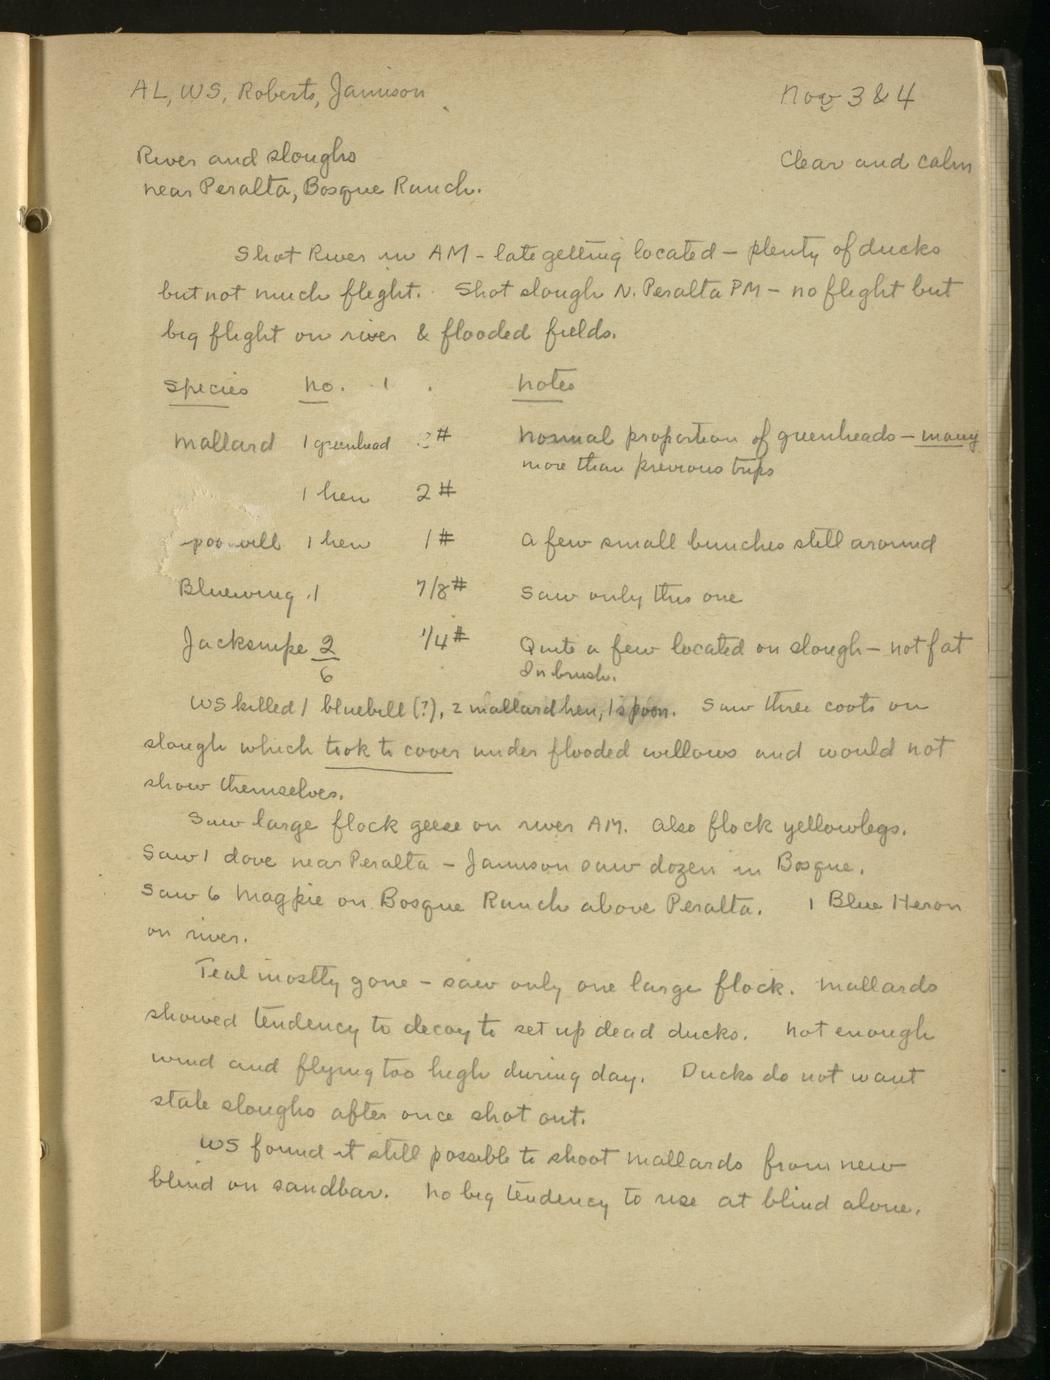 AL, WS, Roberts, Jamison Nov 3 & 4
River and sloughs Clear and calm
near Peralta, Bosque Ranch.
Shot River in AM - late getting located - plenty of ducks
but not much flight. Shot slough N. Peralta PM - no flight but
big flight on river & flooded fields.
Species No. Notes
Mallard 1 greenhead 2# Normal proportion of greenheads - many
more than previous trips
1 hen 2#
spoonbill 1 hen 1# A few small bunches still around
Bluewing 1 7/8# Saw only this one
Jacksnipe 2 1/4# Quite a few located on slough - not fat
6 In brush.
WS killed 1 bluebill (?), 2 mallard hen, 1 spoon. Saw three coots on
slough which took to cover under flooded willows and would not
show themselves.
Saw large flock geese on river AM. Also flock yellowlegs.
Saw 1 dove near Peralta - Jamison saw dozen in Bosque.
Saw 6 Magpie on Bosque Ranch above Peralta. 1 Blue Heron
on river.
Teal mostly gone - saw only one large flock. Mallards
showed tendency to decoy to set up dead ducks. Not enough
wind and flying too high during day. Ducks do not want
stale sloughs after once shot out.
WS found it still possible to shoot mallards from new
blind on sandbar. No big tendency to use at blind alone.